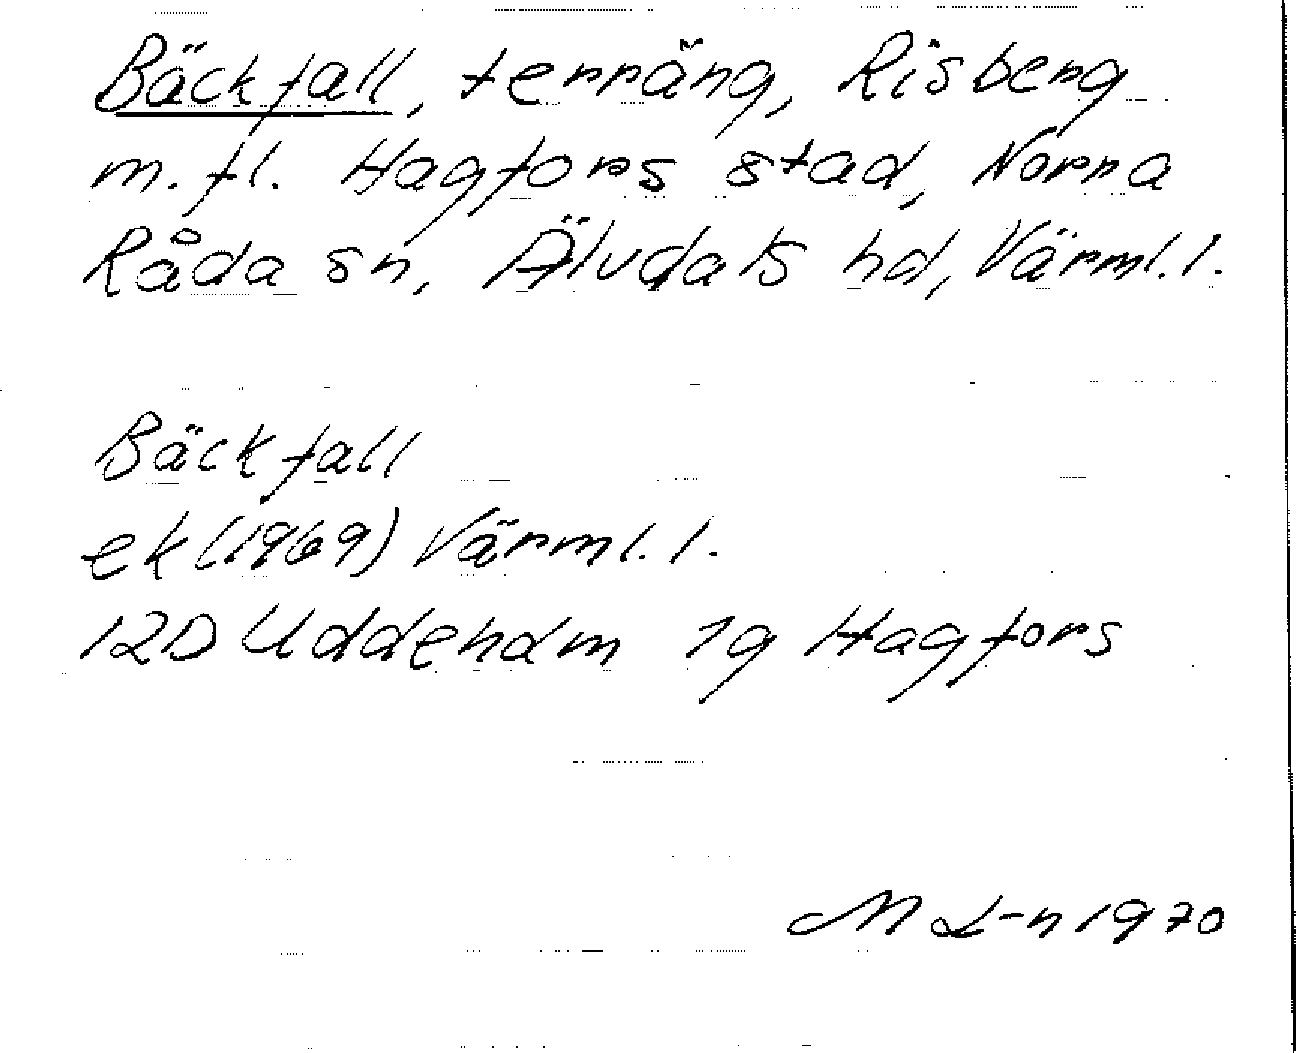 Bäckfall, terräng, Risberg
m.fl. Hagfors stad, Norra
Råda sn, Älvdals hd, Värml.l.
Bäckfall
ek (1969) Värml.l.
12D Uddeholm 1g Hagfors
M L-n 1970